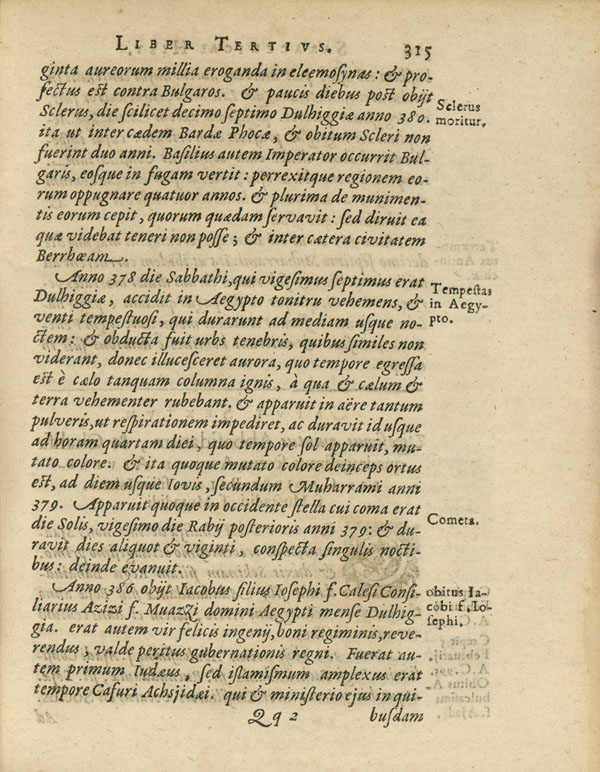 LIBER TERTIVS. 315
ginta aureorum millia eroganda in eleemosynas: & pro-
fectus est contra Bulgaros. & paucis diebus post obijt
Sclerus, die scilicet decimo septimo Dulhiggiæ anno 380.
Sclerus
moritur.
ita ut inter cædem Bardæ Phocæ, & obitum Scleri non
fuerint duo anni. Basilius autem Imperator occurrit Bul-
garis, eosque in fugam vertit: perrexitque regionem eo-
rum oppugnare quatuor annos. & plurima de munimen-
tis eorum cepit, quorum quædam servavit: sed diruit ea
quæ videbat teneri non posse; & inter cætera civitatem
Berrhœam.
Anno 378 die Sabbathi, qui vigesimus septimus erat
Dulhiggiæ, accidit in Aegypto tonitru vehemens, &
Tempestas
in Aegy-
pto.
venti tempestuosi, qui durarunt ad mediam usque no-
ctem: & obducta fuit urbs tenebris, quibus similes non
viderant, donec illucesceret aurora, quo tempore egressa
est è cælo tanquam columna ignis, à qua & cælum &
terra vehementer rubebant. & apparuit in aëre tantum
pulveris, ut respirationem impediret, ac duravit id usque
ad horam quartam diei, quo tempore sol apparuit, mu-
tato colore. & ita quoque mutato colore deinceps ortus
est, ad diem usque Iovis, secundum Muharrami anni
379. Apparuit quoque in occidente stella cui coma erat
die Solis, vigesimo die Rabij posterioris anni 379: & du-
Cometa.
ravit dies aliquot & viginti, conspecta singulis nocti-
bus: deinde evanuit.
Anno 386 obijt Iacobus filius Iosephi f. Calesi Consi-
obitus Ia-
cobi f. Io-
sephi.
liarius Azizi f. Muazzi domini Aegypti mense Dulhig-
gia. erat autem vir felicis ingenij, boni regiminis, reve-
rendus, valde peritus gubernationis regni. Fuerat au-
tem primum Iudæus, sed islamismum amplexus erat
tempore Cafuri Achsjidæi. qui & ministerio ejus in qui-
Qq 2 busdam